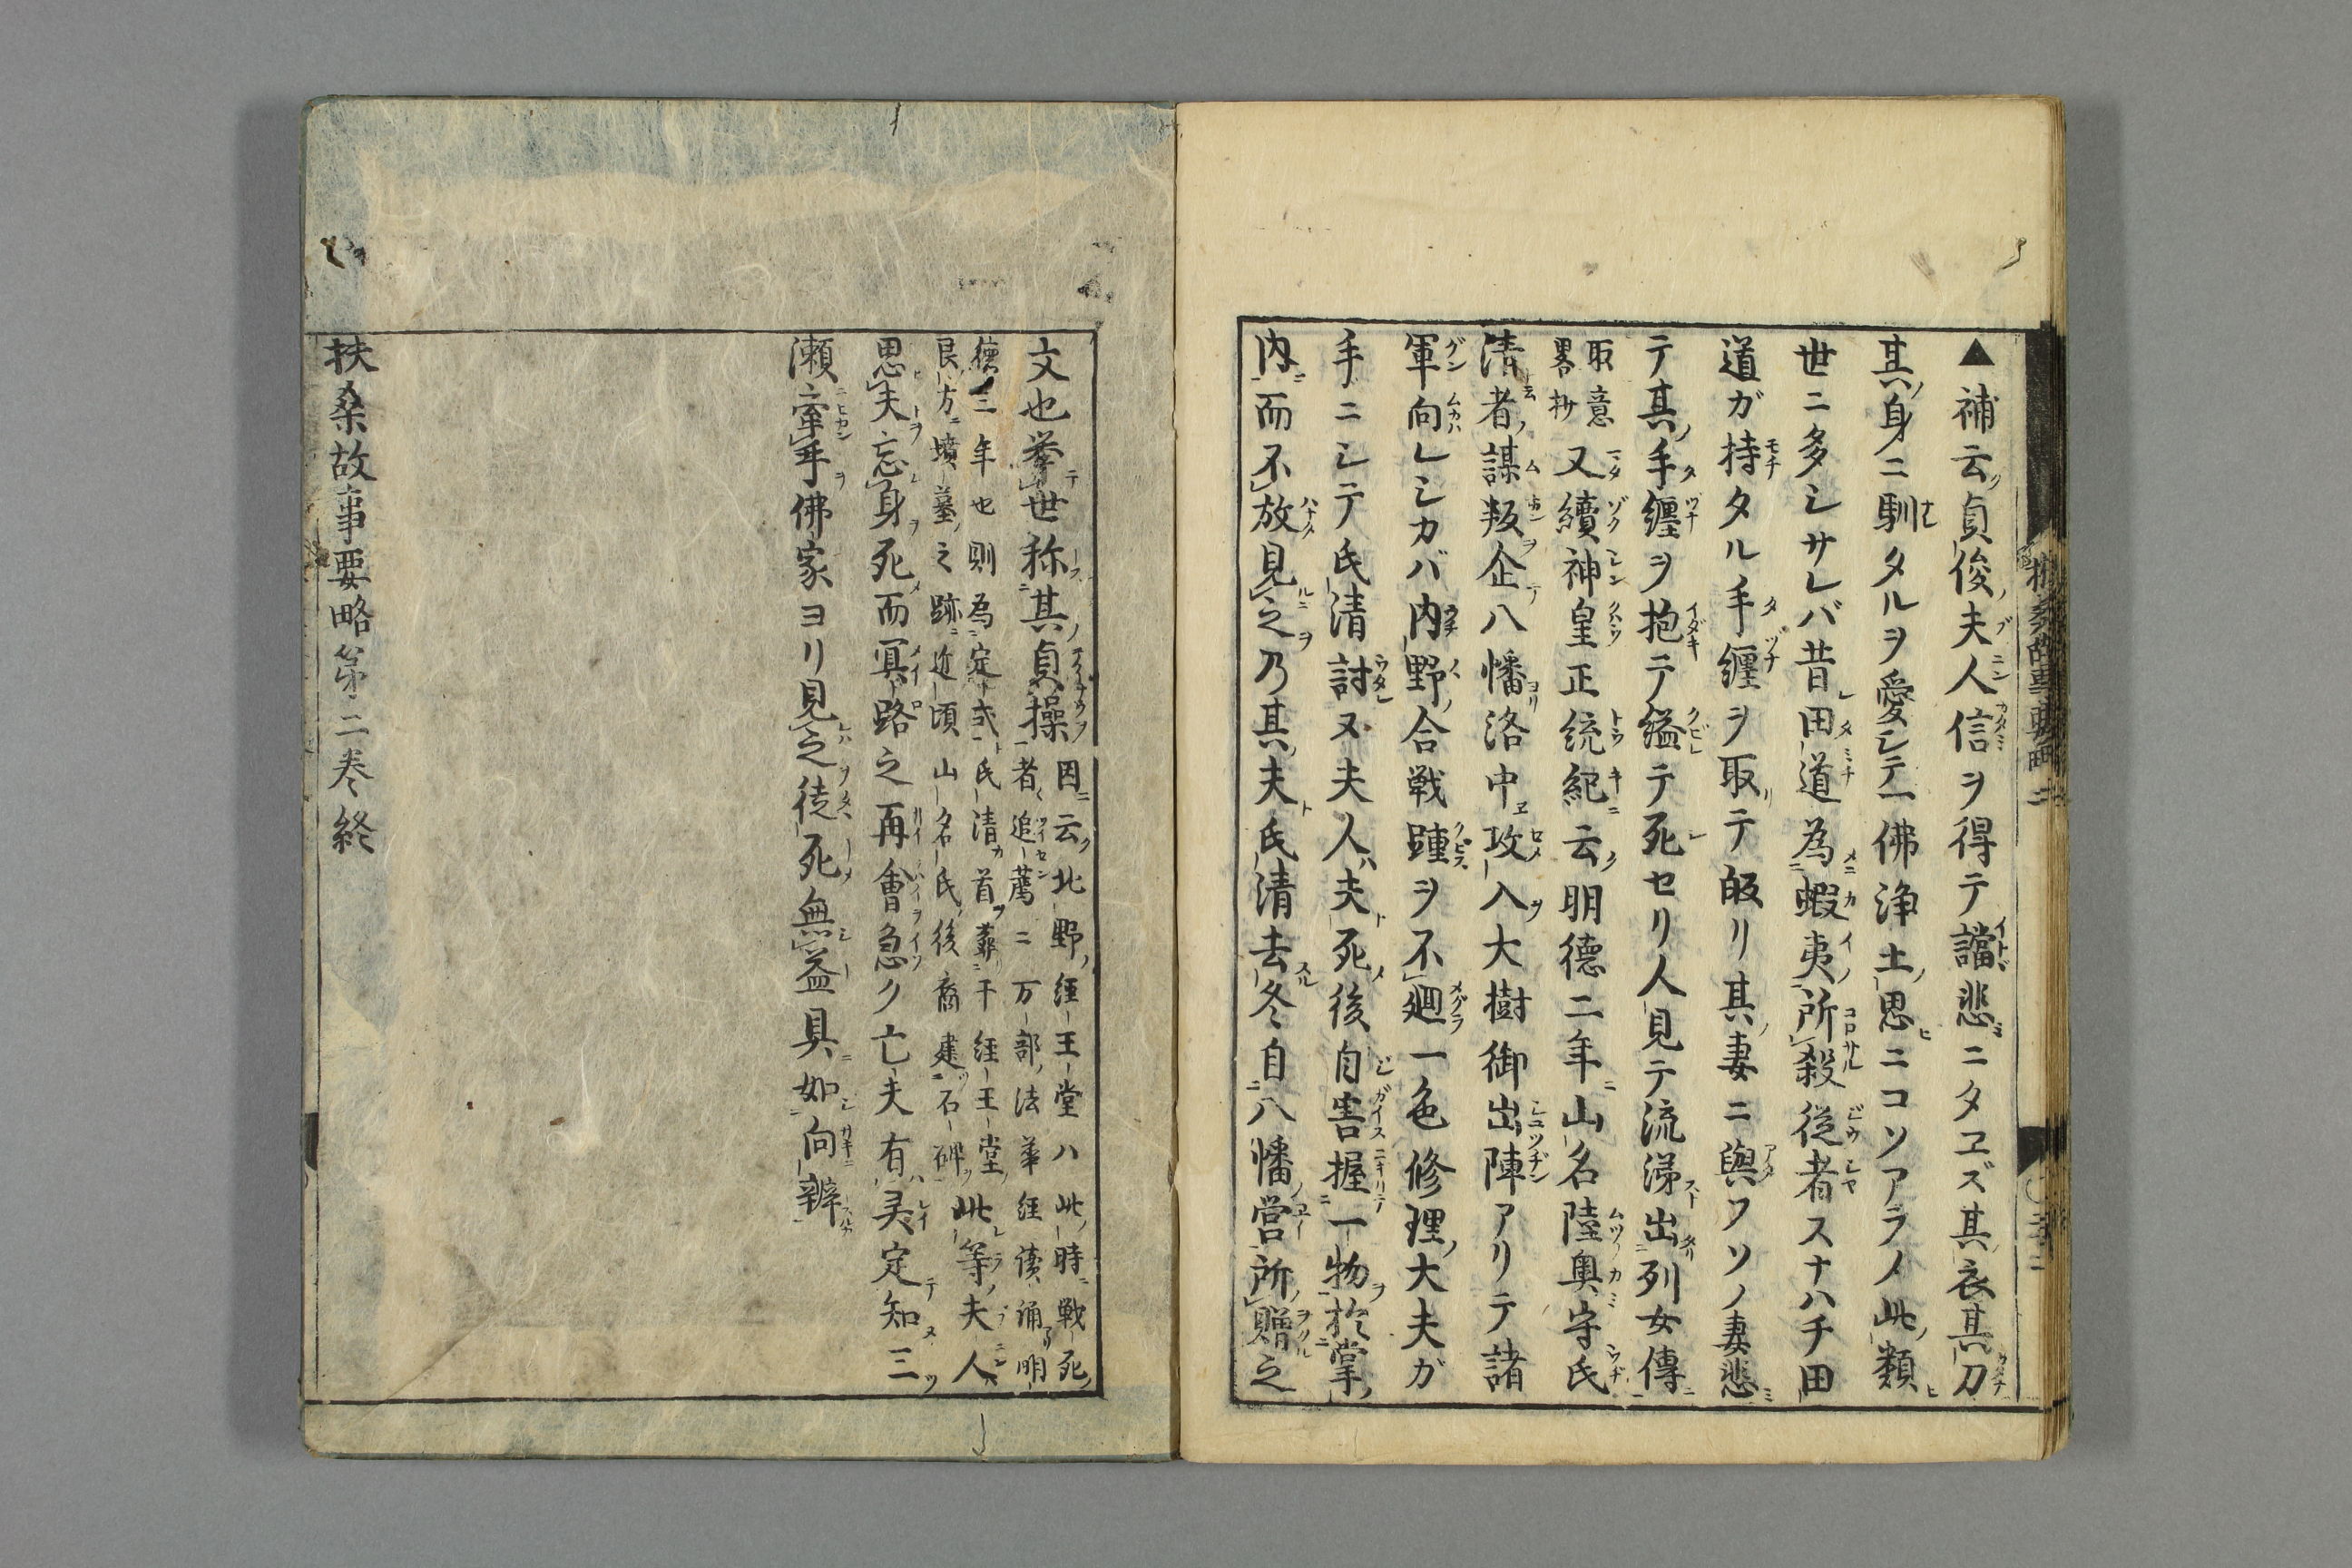 ▲補云貞俊夫人信ヲ得テ譡悲ニタヱズ其衣其刀
其身ニ馴タルヲ愛シテ一佛淨土ノ思ニコソアラメ此類
世ニ多シサレバ昔田道為蝦夷所殺從者スナハチ田
道ガ持タル手纏ヲ取テ皈リ其妻ニ與フソノ妻悲
テ其手纏ヲ抱テ縊テ死セリ人見テ流涕出列女傳
取意
畧抄
又續神皇正統紀云明德二年山名陸奥守氏
清者謀叛企八幡洛中攻入大樹御出陣アリテ諸
軍向レシカバ内野合戰踵ヲ不廻一色修理大夫ガ
手ニシテ氏清討又夫人夫死後自害握一物於掌
内而不放見之乃其夫氏清去冬自八幡営所贈之
文也挙世称其貞操
因云北野經王堂ハ此時戰死
者追薦ニ万部法華經讀誦明
德三年也則為定式氏清首葬干經王堂
艮方墳墓之跡近頃山名氏後裔建石碑
此等夫人
思夫忘身死而冥路之再會急ク亡夫有灵定知三
瀬牽手佛家ヨリ見之徒死無益具如向辨
扶桑故事要略第二卷終
扶桑故事要略二